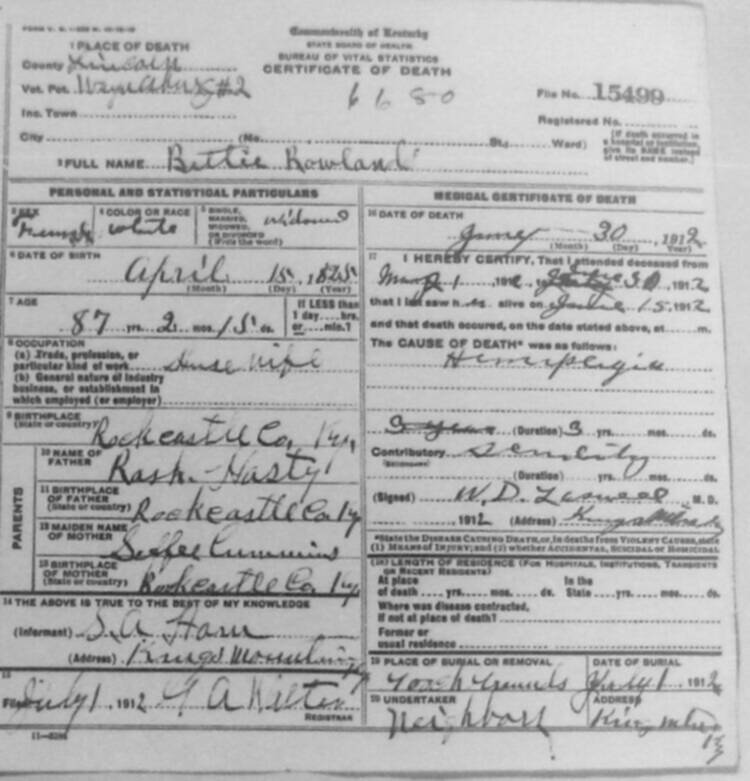 Commonwealth of Kentucky
STATE BOARD OF HEALTH
BUREAU OF VITAL STATISTICS
CERTIFICATE OF DEATH
1 PLACE OF DEATH
County Lincoln
Vot. Pct. #2
6680
File No. 15499
Inc. Town
Registered No.
City (No. St., Ward)
(If death occurred in a hospital or institution, give its NAME instead of street and number.)
2 FULL NAME Bettie Rowland
PERSONAL AND STATISTICAL PARTICULARS
3 SEX Female
4 COLOR OR RACE White
5 SINGLE, MARRIED, WIDOWED, OR DIVORCED (Write the word) Widowed
6 DATE OF BIRTH
April 15, 1825
(Month) (Day) (Year)
7 AGE
87 yrs. 2 mos. 15 ds.
If LESS than 1 day.... hrs. or.... min.?
8 OCCUPATION
(a) Trade, profession, or particular kind of work House Wife
(b) General nature of industry business, or establishment in which employed (or employer)
9 BIRTHPLACE
(State or country) Rockcastle Co, Ky,
PARENTS
10 NAME OF FATHER Rash Hasty
11 BIRTHPLACE OF FATHER
(State or country) Rockcastle Co Ky
12 MAIDEN NAME OF MOTHER Cummins
13 BIRTHPLACE OF MOTHER
(State or country) Rockcastle Co, Ky,
14 THE ABOVE IS TRUE TO THE BEST OF MY KNOWLEDGE
(Informant) S.A Ham
(Address) Kings Mountain Ky
15
Filed July 1 1912 G A
REGISTRAR
11-3284
MEDICAL CERTIFICATE OF DEATH
16 DATE OF DEATH
June 30, 1912
(Month) (Day) (Year)
17 I HEREBY CERTIFY, That I attended deceased from
May 1 191 June 30, 1912
that I last saw h er alive on June 15, 1912
and that death occured, on the date stated above, at m.
The CAUSE OF DEATH* was as follows:
Hemiplegia
3 years (Duration) 3 yrs. mos. ds.
Contributory Senility
(SECONDARY)
(Duration) yrs. mos. ds.
(Signed) W. D. M. D.
1912 (Address) Kings
*State the DISEASE CAUSING DEATH, or, in deaths from VIOLENT CAUSES, state
(1) MEANS OF INJURY; and (2) whether ACCIDENTAL, SUICIDAL or HOMICIDAL
18 LENGTH OF RESIDENCE (FOR HOSPITALS, INSTITUTIONS, TRANSIENTS OR RECENT RESIDENTS)
At place of death yrs. mos. ds. In the State yrs. mos. ds.
Where was disease contracted,
If not at place of death?
Former or usual residence
19 PLACE OF BURIAL OR REMOVAL
DATE OF BURIAL
July 1, 1912
20 UNDERTAKER
Neighbors
ADDRESS
Ky